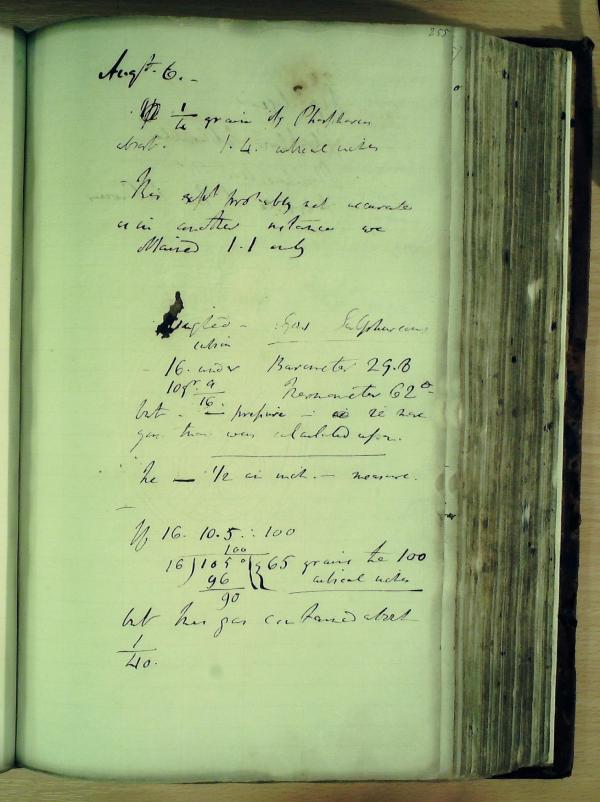 255
Augst. 6. -
1/4 grain of Phosphorus
about. 1.4. cubical inches
This expt probably not accurate
as in another instance we
obtained 1.1 only
- Gas Sulphureous
cubic
16. under Barometer 29.8
10gr. 9/16. Thermometer 62°
but - pressure -
gas than was calculated upon.
he — 1/2 an inch - measure.
If 16. 10.5 :: 100
100
16)1050(65 grains the 100
96 cubical inches
90
but this gas contained about
1/40.